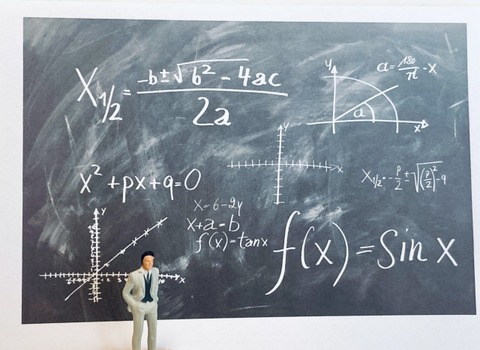 X1/2 = -b±√b² - 4ac / 2a
y
a = 180/π - x
a
x
x² + px + q = 0
y
x
X1/2 = -p/2 ± √(p/2)² - q
x = 6 - 2y
x + a = b
f(x) = tanx
f(x) = Sin x
y
x